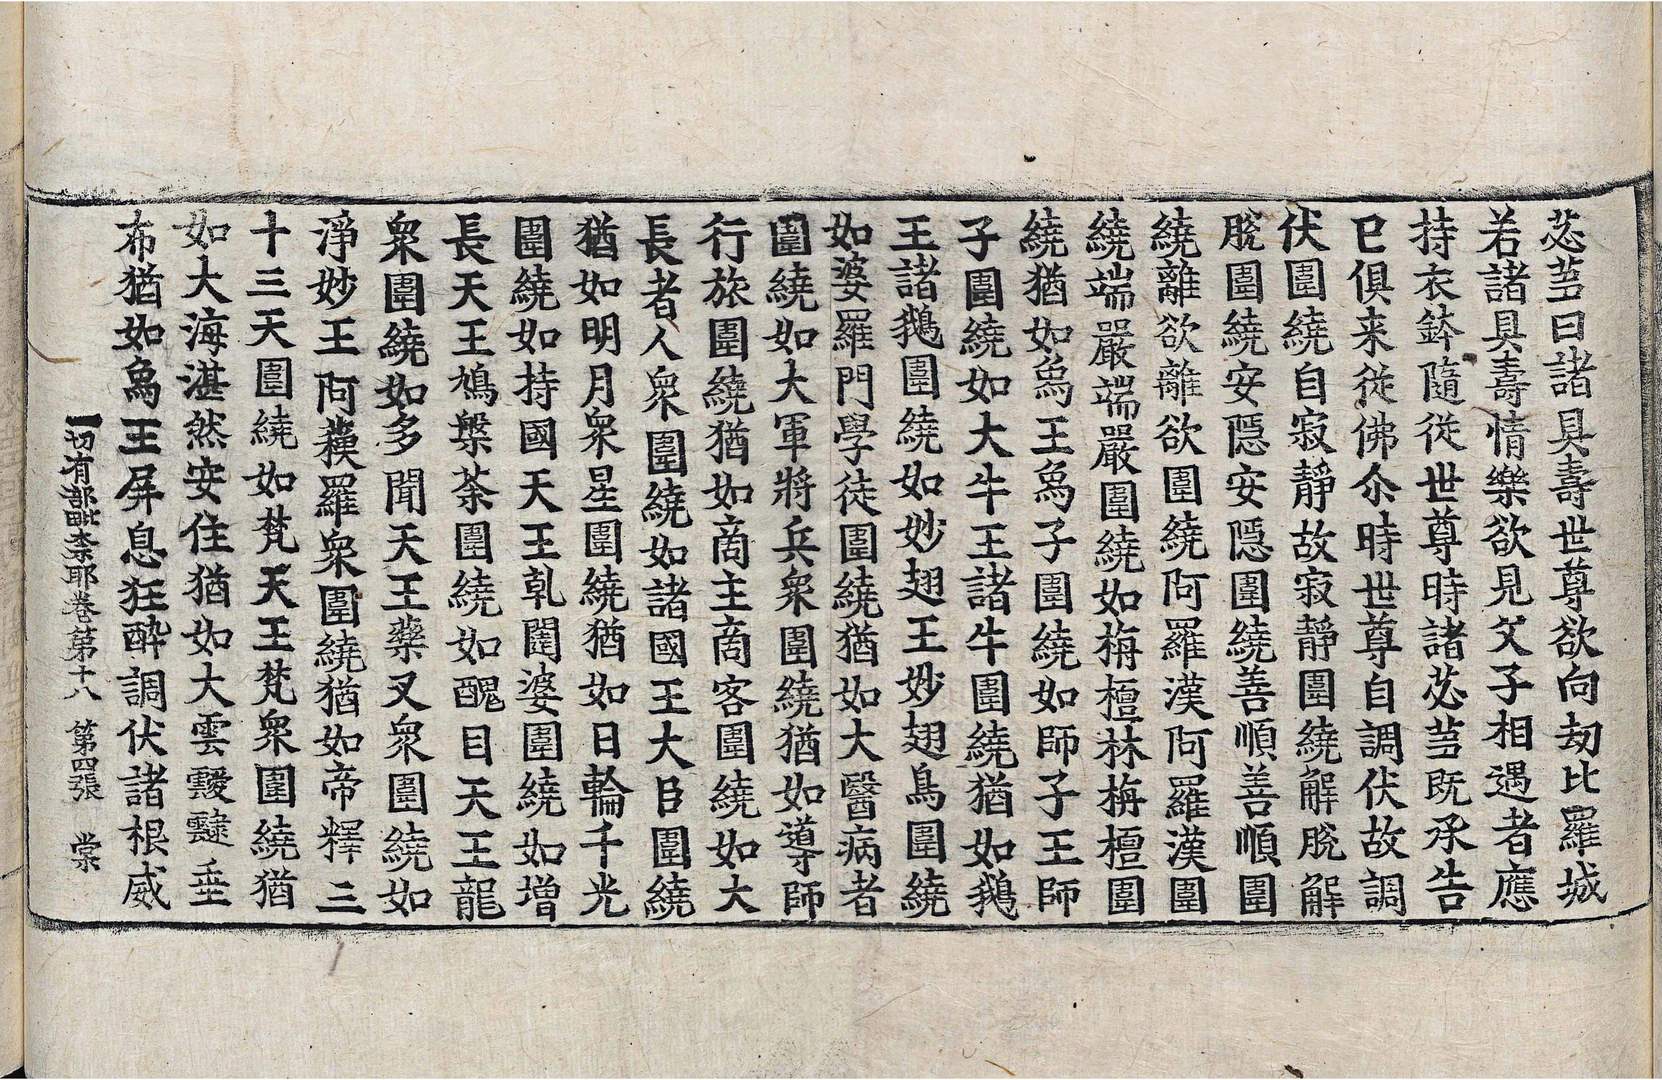 苾芻曰諸具壽世尊欲向劫比羅城
若諸具壽情樂欲見父子相遇者應
持衣鉢隨從世尊時諸苾芻既承告
已俱来從佛尒時世尊自調伏故調
伏圍繞自寂靜故寂靜圍繞解脫解
脫圍繞安隱安隱圍繞善順善順圍
繞離欲離欲圍繞阿羅漢阿羅漢圍
繞端嚴端嚴圍繞如栴檀林栴檀圍
繞猶如象王象子圍繞如師子王師
子圍繞如大牛王諸牛圍繞猶如鵝
王諸鵝圍繞如妙翅王妙翅鳥圍繞
如婆羅門學徒圍繞猶如大醫病者
圍繞如大軍將兵衆圍繞猶如導師
行旅圍繞猶如商主商客圍繞如大
長者人衆圍繞如諸國王大臣圍繞
猶如明月衆星圍繞猶如日輪千光
圍繞如持國天王乹闥婆圍繞如增
長天王鳩槃荼圍繞如醜目天王龍
衆圍繞如多聞天王藥叉衆圍繞如
淨妙王阿蘇羅衆圍繞猶如帝釋三
十三天圍繞如梵天王梵衆圍繞猶
如大海湛然安住猶如大雲靉靆垂
布猶如象王屏息狂醉調伏諸根威
一切有部毗奈耶卷第十八 第四張 棠